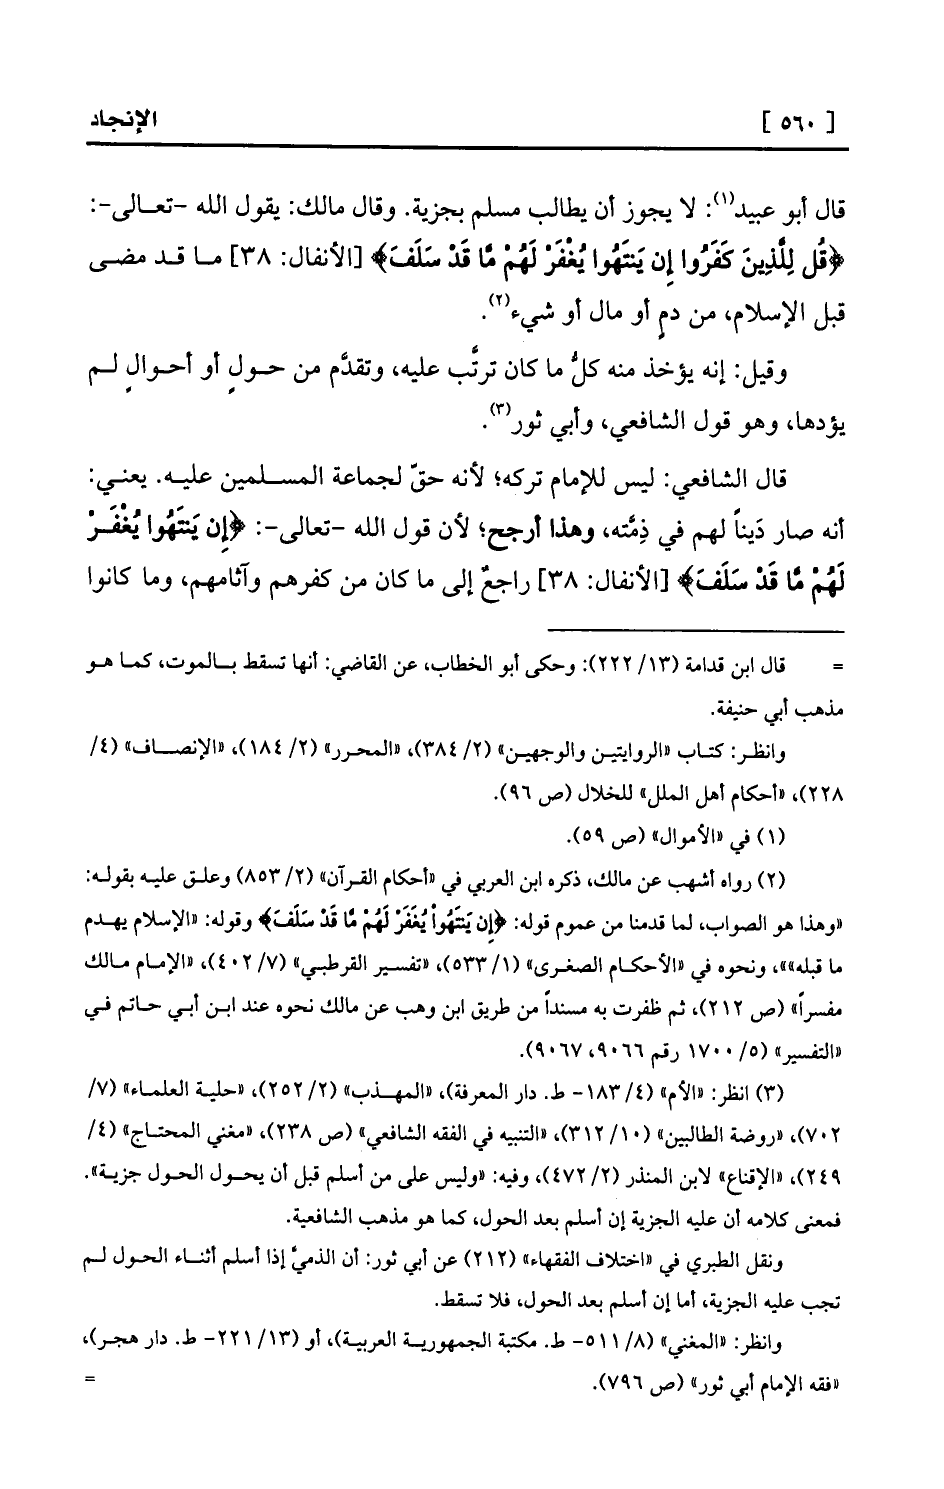 [ ٥٦٠ ] الإنجاد
قال أبو عبيد(١): لا يجوز أن يطالب مسلم بجزية. وقال مالك: يقول الله -تعـالى-:
﴿قُل لِلَّذِينَ كَفَرُوا إِن يَنتَهُوا يُغْفَرْ لَهُمْ مَّا قَدْ سَلَفَ﴾ [الأنفال: ٣٨] مـا قـد مضى
قبل الإسلام، من دمٍ أو مال أو شيء(٢).
وقيل: إنه يؤخذ منه كلُّ ما كان ترتَّب عليه، وتقدَّم من حـولٍ أو أحـوالٍ لـم
يؤدها، وهو قول الشافعي، وأبي ثور(٣).
قال الشافعي: ليس للإمام تركه؛ لأنه حقّ لجماعة المسـلمين عليـه. يعنـي:
أنه صار دَيناً لهم في ذِمَّته، وهذا أرجح؛ لأن قول الله -تعالى-: ﴿إِن يَنتَهُوا يُغْفَـرْ
لَهُمْ مَّا قَدْ سَلَفَ﴾ [الأنفال: ٣٨] راجعٌ إلى ما كان من كفرهم وآثامهم، وما كانوا
= قال ابن قدامة (١٣/ ٢٢٢): وحكى أبو الخطاب، عن القاضي: أنها تسقط بـالموت، كمـا هـو
مذهب أبي حنيفة.
وانظـر: كتـاب «الروايتيـن والوجهيـن» (٢/ ٣٨٤)، «المحرر» (٢/ ١٨٤)، «الإنصـاف» (٤/
٢٢٨)، «أحكام أهل الملل» للخلال (ص ٩٦).
(١) في «الأموال» (ص ٥٩).
(٢) رواه أشهب عن مالك، ذكره ابن العربي في «أحكام القرآن» (٢/ ٨٥٣) وعلـق عليـه بقولـه:
«وهذا هو الصواب، لما قدمنا من عموم قوله: ﴿إِن يَنتَهُواْ يُغْفَرْ لَهُمْ مَّا قَدْ سَلَفَ﴾ وقوله: «الإسلام يهـدم
ما قبله»»، ونحوه في «الأحكام الصغرى» (١/ ٥٣٣)، «تفسير القرطبي» (٧/ ٤٠٢)، «الإمـام مـالك
مفسراً» (ص ٢١٢)، ثم ظفرت به مسنداً من طريق ابن وهب عن مالك نحوه عند ابـن أبـي حاتم فـي
«التفسير» (٥/ ١٧٠٠ رقم ٩٠٦٦، ٩٠٦٧).
(٣) انظر: «الأم» (٤/ ١٨٣- ط. دار المعرفة)، «المهـذب» (٢/ ٢٥٢)، «حليـة العلمـاء» (٧/
٧٠٢)، «روضة الطالبين» (١٠/ ٣١٢)، «التنبيه في الفقه الشافعي» (ص ٢٣٨)، «مغني المحتـاج» (٤/
٢٤٩)، «الإقناع» لابن المنذر (٢/ ٤٧٢)، وفيه: «وليس على من أسلم قبل أن يحـول الحول جزيـة».
فمعنى كلامه أن عليه الجزية إن أسلم بعد الحول، كما هو مذهب الشافعية.
ونقل الطبري في «اختلاف الفقهاء» (٢١٢) عن أبي ثور: أن الذميَّ إذا أسلم أثنـاء الحول لـم
تجب عليه الجزية، أما إن أسلم بعد الحول، فلا تسقط.
وانظر: «المغني» (٨/ ٥١١- ط. مكتبة الجمهوريـة العربيـة)، أو (١٣/ ٢٢١- ط. دار هجـر)،
«فقه الإمام أبي ثور» (ص ٧٩٦). =